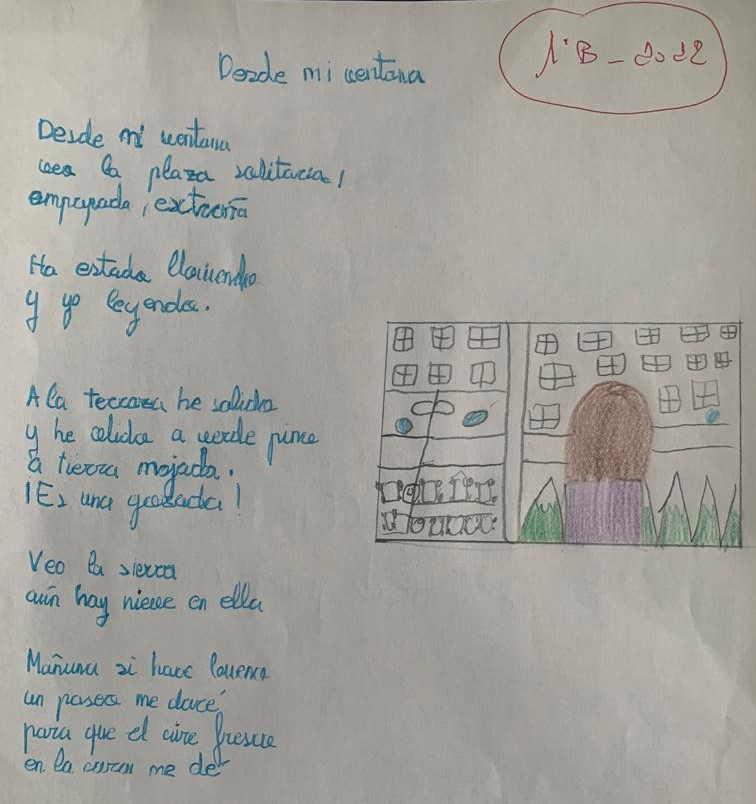 1ºB - 2022
Desde mi ventana
Desde mi ventana
veo la plaza solitaria,
empapada, extraña
Ha estado lloviendo
y yo leyendo.
A la terraza he salido
y he olido a verde pino
a tierra mojada.
¡Es una gozada!
Veo la sierra
aún hay nieve en ella
Mañana si hace bueno
un paseo me daré
para que el aire fresco
en la cara me dé